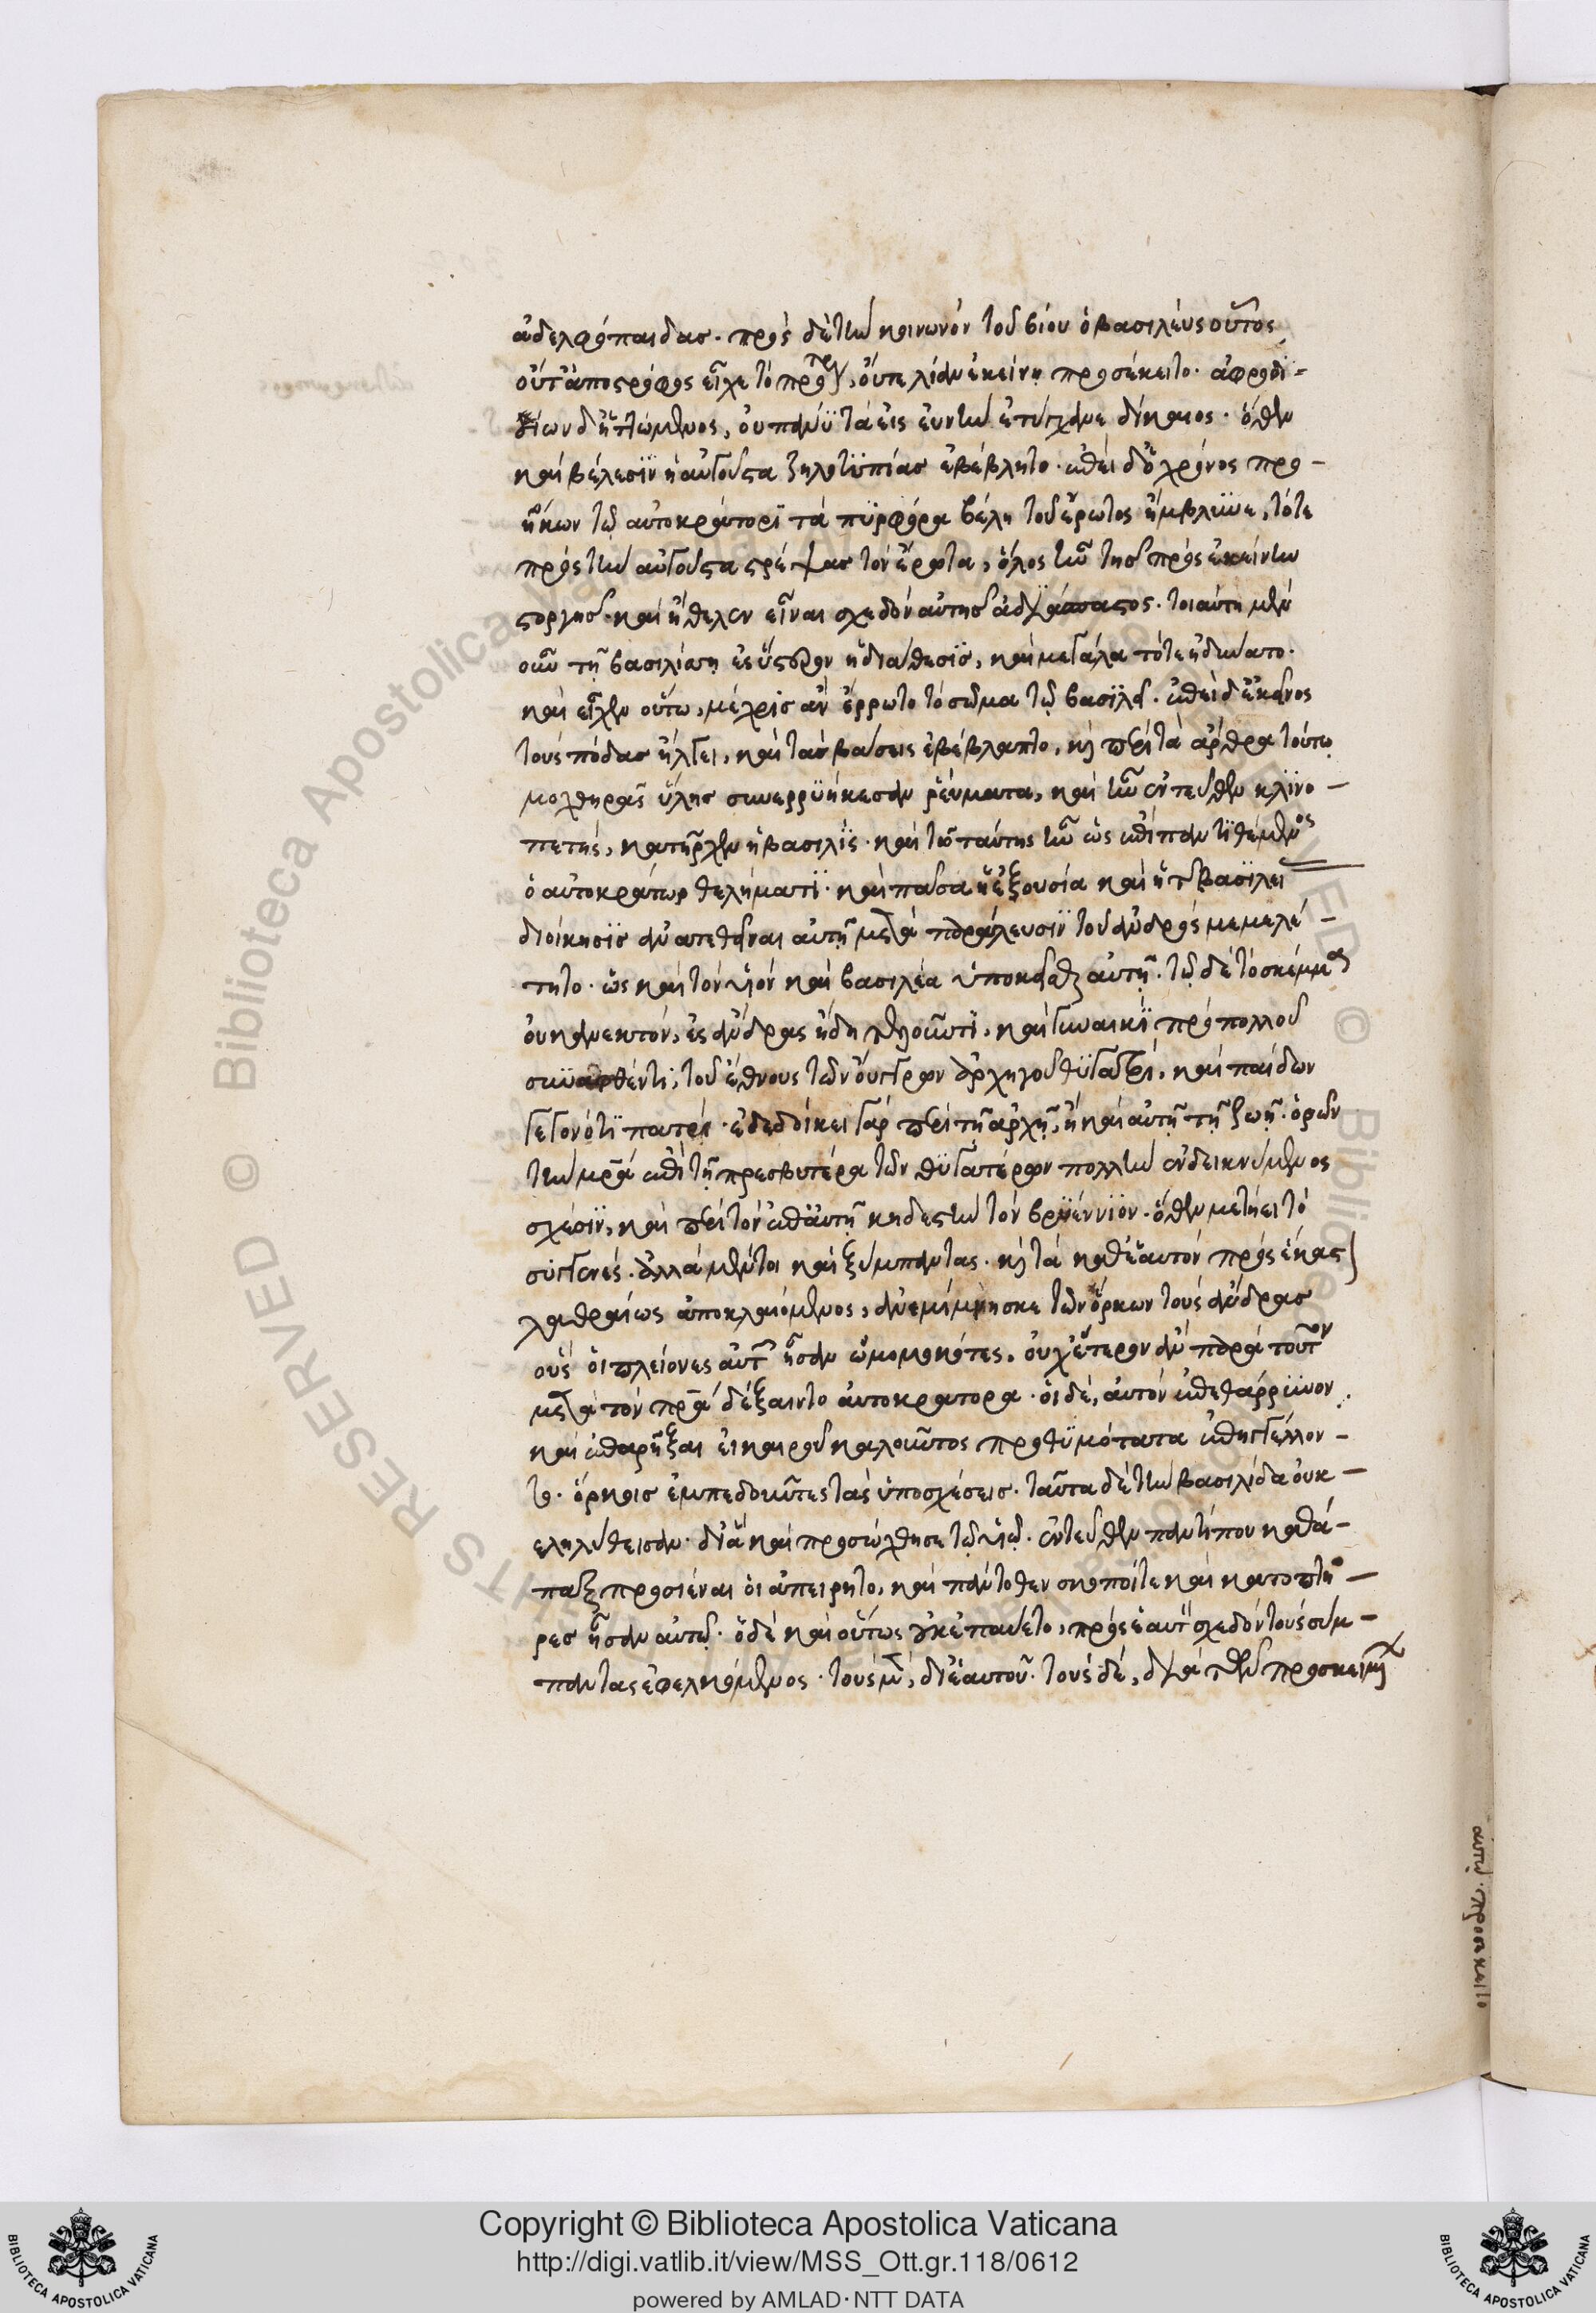 ἀδελφόπαιδας. πρὸς δὲ τὴν κοινωνὸν τοῦ βίου ὁ βασιλεὺς οὗτος
οὔτ ἀποστρόφως εἶχε τὸ πρότερον, οὔτε λίαν ἐκείνῃ προσέκειτο. ἀφροδι-
σίων δ ἡττώμενος, οὐ πάνυ τὰ εἰς εὐνὴν ἐτύγχανε δίκαιος. ὅθεν
καὶ βέλεσιν ἡ αὐγούστα ζηλοτυπίας ἐβέβλητο. ἐπεὶ δ ὁ χρόνος προ-
ήκων τῷ αὐτοκράτορι τὰ πυρφόρα βέλη τοῦ ἔρωτος ἤμβλυνε, τότε
πρὸς τὴν αὐγούσταν στρέψας τὸν ἔρωτα, ὅλος ἦν τῆς πρὸς ἐκείνην
στοργῆς. καὶ ἤθελεν εἶναι σχεδὸν αὐτῆς ἀδιάσπαστος. τοιαύτη μὲν
οὖν τῇ βασιλίσσῃ ἐς ὕστερον ἡ διάθεσις, καὶ μεγάλα τότε ἠδύνατο.
καὶ εἶχεν οὕτω, μέχρις ἂν ἔρρωτο τὸ σῶμα τῷ βασιλεῖ. ἐπεὶ δ ἐκεῖνος
τοὺς πόδας ἤλγει, καὶ τὰς βάσεις ἐβέβλαπτο, καὶ περὶ τὰ ἄρθρα τούτῳ
μοχθηρᾶς ὕλης συνερρυήκεσαν ῥεύματα, καὶ ἦν ἐντεῦθεν κλινο-
πετής, κατῆρχεν ἡ βασιλίς. καὶ ὑπὸ ταύτης ἦν ὡς ἐπίπαν τιθέμενος
ὁ αὐτοκράτωρ θελήματι. καὶ πᾶσα ἡ ἐξουσία καὶ ἡ τῆς βασιλείας
διοίκησις ἀνατεθεῖναι αὐτῇ μετὰ παρέλευσιν τοῦ ἀνδρὸς μεμελέ-
τητο. ὡς καὶ τὸν υἱὸν καὶ βασιλέα ὑποκεῖσθαι αὐτῇ. τῷ δὲ τὸ σκέμμα
οὐκ ἀνεκτόν, ἐς ἄνδρας ἤδη τελοῦντι, καὶ γυναικὶ πρὸ πολλοῦ
συναφθέντι, τοῦ ἔθνους τῶν οὔγγρων ἀρχηγοῦ θυγατρί, καὶ παίδων
γεγονότι πατρί. ἐδεδοίκει γὰρ περὶ τῇ ἀρχῇ, ἢ καὶ αὐτῇ τῇ ζωῇ. ὁρῶν
τὴν μητέρα ἐπὶ τῇ πρεσβυτέρα τῶν θυγατέρων πολλὴν ἐνδεικνυμένην
σχέσιν, καὶ περὶ τὸν ἐπ αὐτῇ κηδεστὴν τὸν βρυέννιον. ὅθεν μετῄει τὸ
συγγενές. ἀλλὰ μέντοι καὶ ξύμπαντας. καὶ τὰ καθ ἑαυτὸν πρὸς ἕκαστον
λαθραίως ἀποκλαιόμενος, ἀνεμίμνησκε τῶν ὅρκων τοὺς ἄνδρας
οὓς οἱ πλείονες αὐτῷ ἦσαν ὀμωμοκότες, οὐχ ἕτερον ἂν παρὰ τοῦτον
μετὰ τὸν πατέρα δέξαιντο αὐτοκράτορα. οἱ δέ, αὐτὸν ἐπεθάρρυνον
καὶ ἐπαρῆξαι ἐκ καιροῦ καλοῦντος προθυμότατα ἐπηγγέλλον-
το. ὅρκοις ἐμπεδοῦντες τὰς ὑποσχέσεις. ταῦτα δὲ τὴν βασιλίδα οὐκ
ἐλελύθεισαν. δι ἃ καὶ προσώχθησε τῷ υἱῷ. ἐντεῦθεν παντί που καθά-
παξ προσιέναι οἱ ἀπείρητο, καὶ πάντοθεν σκοποί τε καὶ κατοπτῆ-
ρες ἦσαν αὐτῷ. ὁ δὲ καὶ οὕτως οὐκ ἐπαύετο, πρὸς ἑαυτὸν σχεδὸν τοὺς σύμ-
παντας ἐφελκόμενος. τοὺς μέν, δι ἑαυτοῦ. τοὺς δέ, διὰ τῶν προσκειμένων
αὐτῷ. προσεκειτο